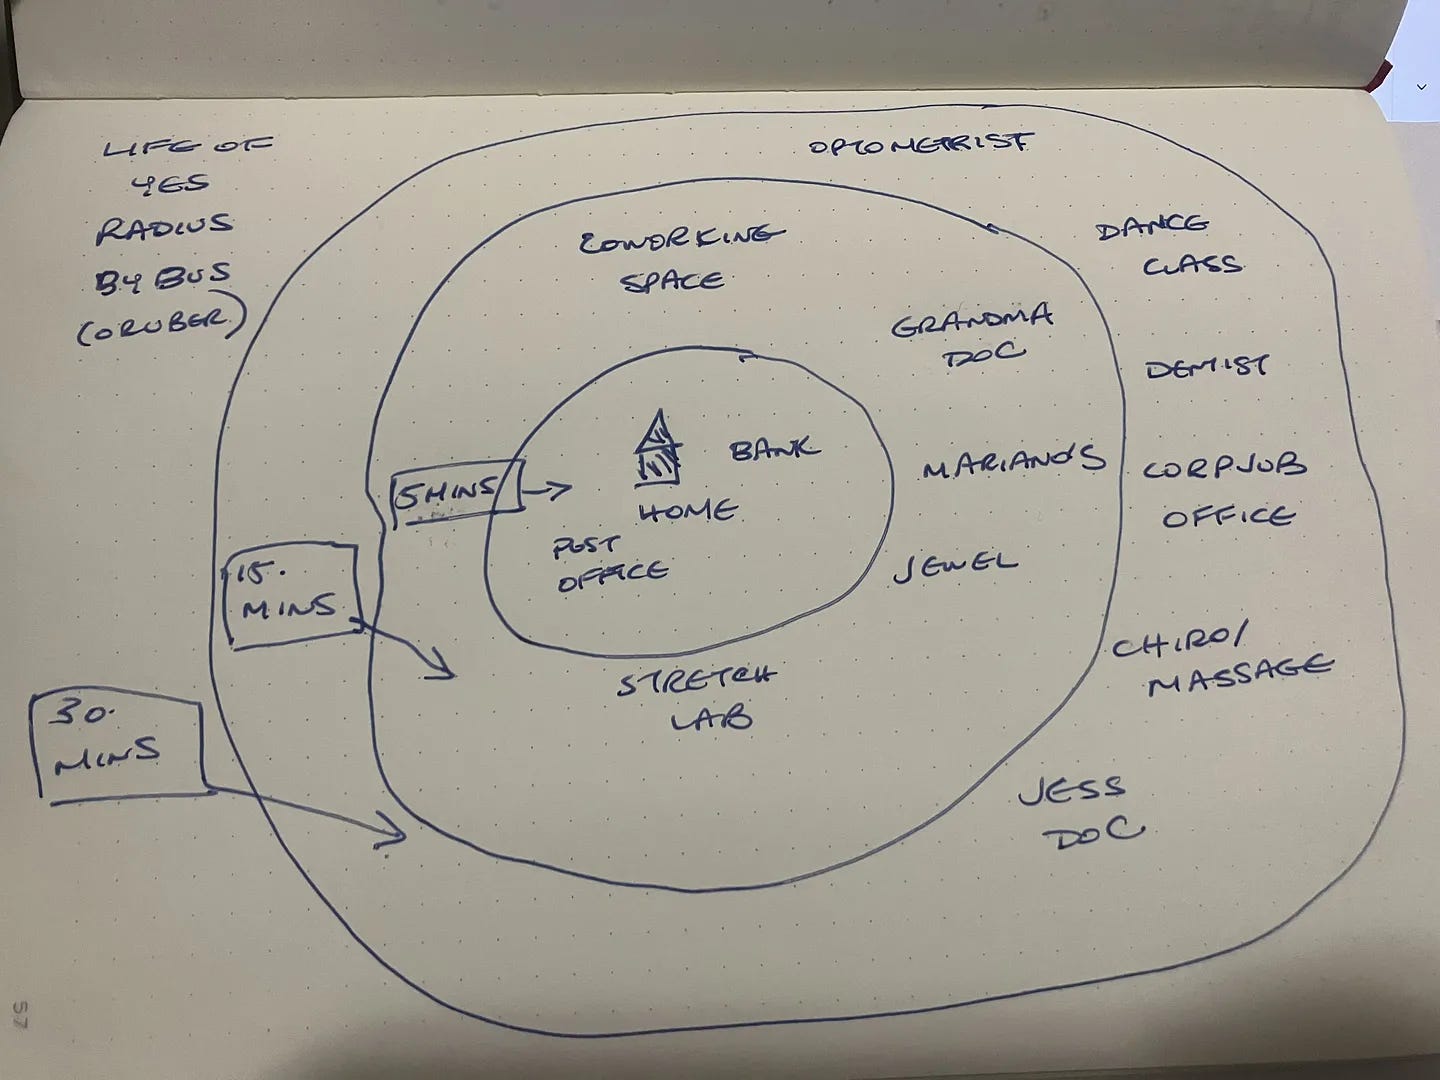 LIFE OF
YES
RADIUS
BY BUS
(OR UBER)
OPTOMETRIST
DANCE
CLASS
COWORKING
SPACE
GRANDMA
DOC
DENTIST
BANK
MARIANO'S
CORPJOB
OFFICE
5 MINS
HOME
POST
OFFICE
JEWEL
15.
MINS
CHIRO/
MASSAGE
STRETCH
LAB
30.
MINS
JESS
DOC
57